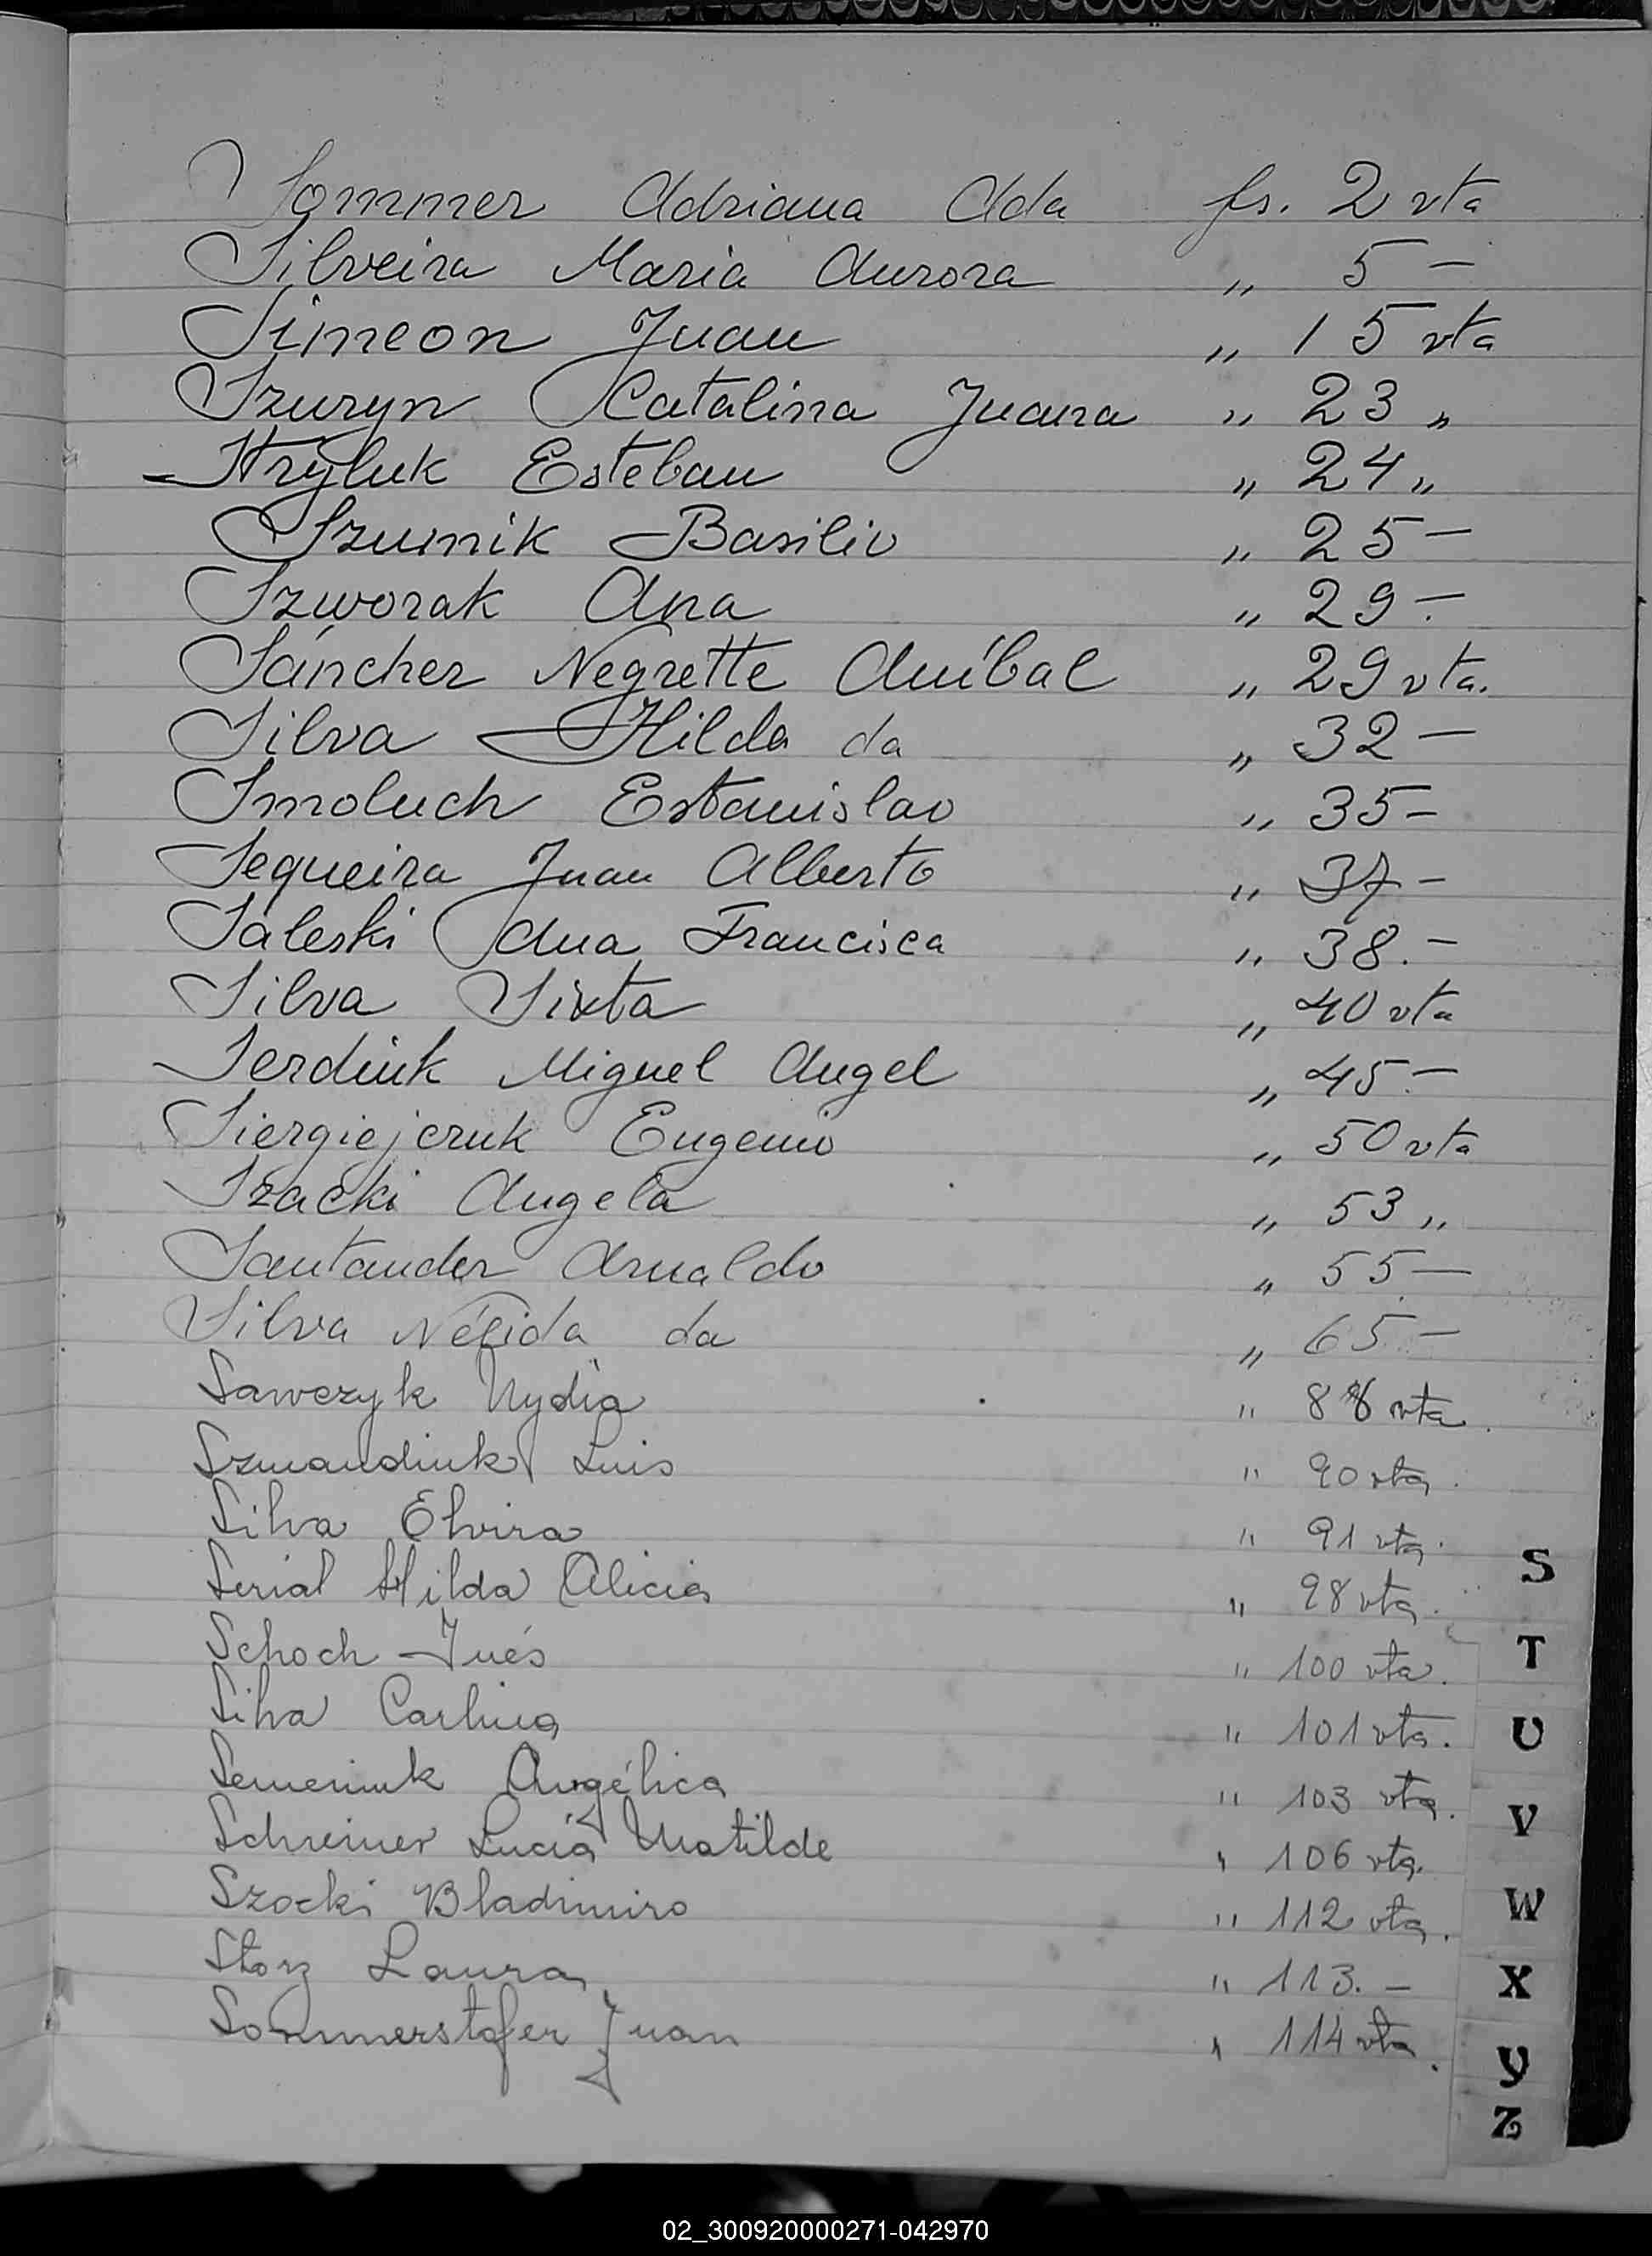 Sommer Adriana Ada fs. 2 vta
Silveira Maria Aurora " 5 —
Simeon Juan " 15 vta
Szuryn Catalina Juana " 23 "
Stryluk Esteban " 24 "
Szumik Basilio " 25 —
Szworak Ana " 29 —
Sánchez Negrette Aníbal " 29 vta.
Silva Hilda da " 32 —
Smoluch Estanislao " 35 —
Sequeira Juan Alberto " 37 —
Saleski Ana Francisca " 38. —
Silva Sixta " 40 vta
Serdiuk Miguel Angel " 45 —
Siergiejczuk Eugenio " 50 vta
Szacki Angela " 53 "
Santander Arnaldo " 55 —
Silva Nélida da " 65 —
Sawczyk Nydia " 88 vta
Szmandiuk Luis " 90 vta.
Silva Elvira " 91 vta.
Serial Hilda Alicia " 98 vta.
Schoch Inés " 100 vta.
Silva Carlina " 101 vta.
Semeniuk Angélica " 103 vta.
Schreiner Lucía Matilde " 106 vta.
Szocki Bladimiro " 112 vta.
Storz Laura " 113. —
Sommerstofer Juan " 114 vta.
S
T
U
V
W
X
Y
Z
02_300920000271-042970